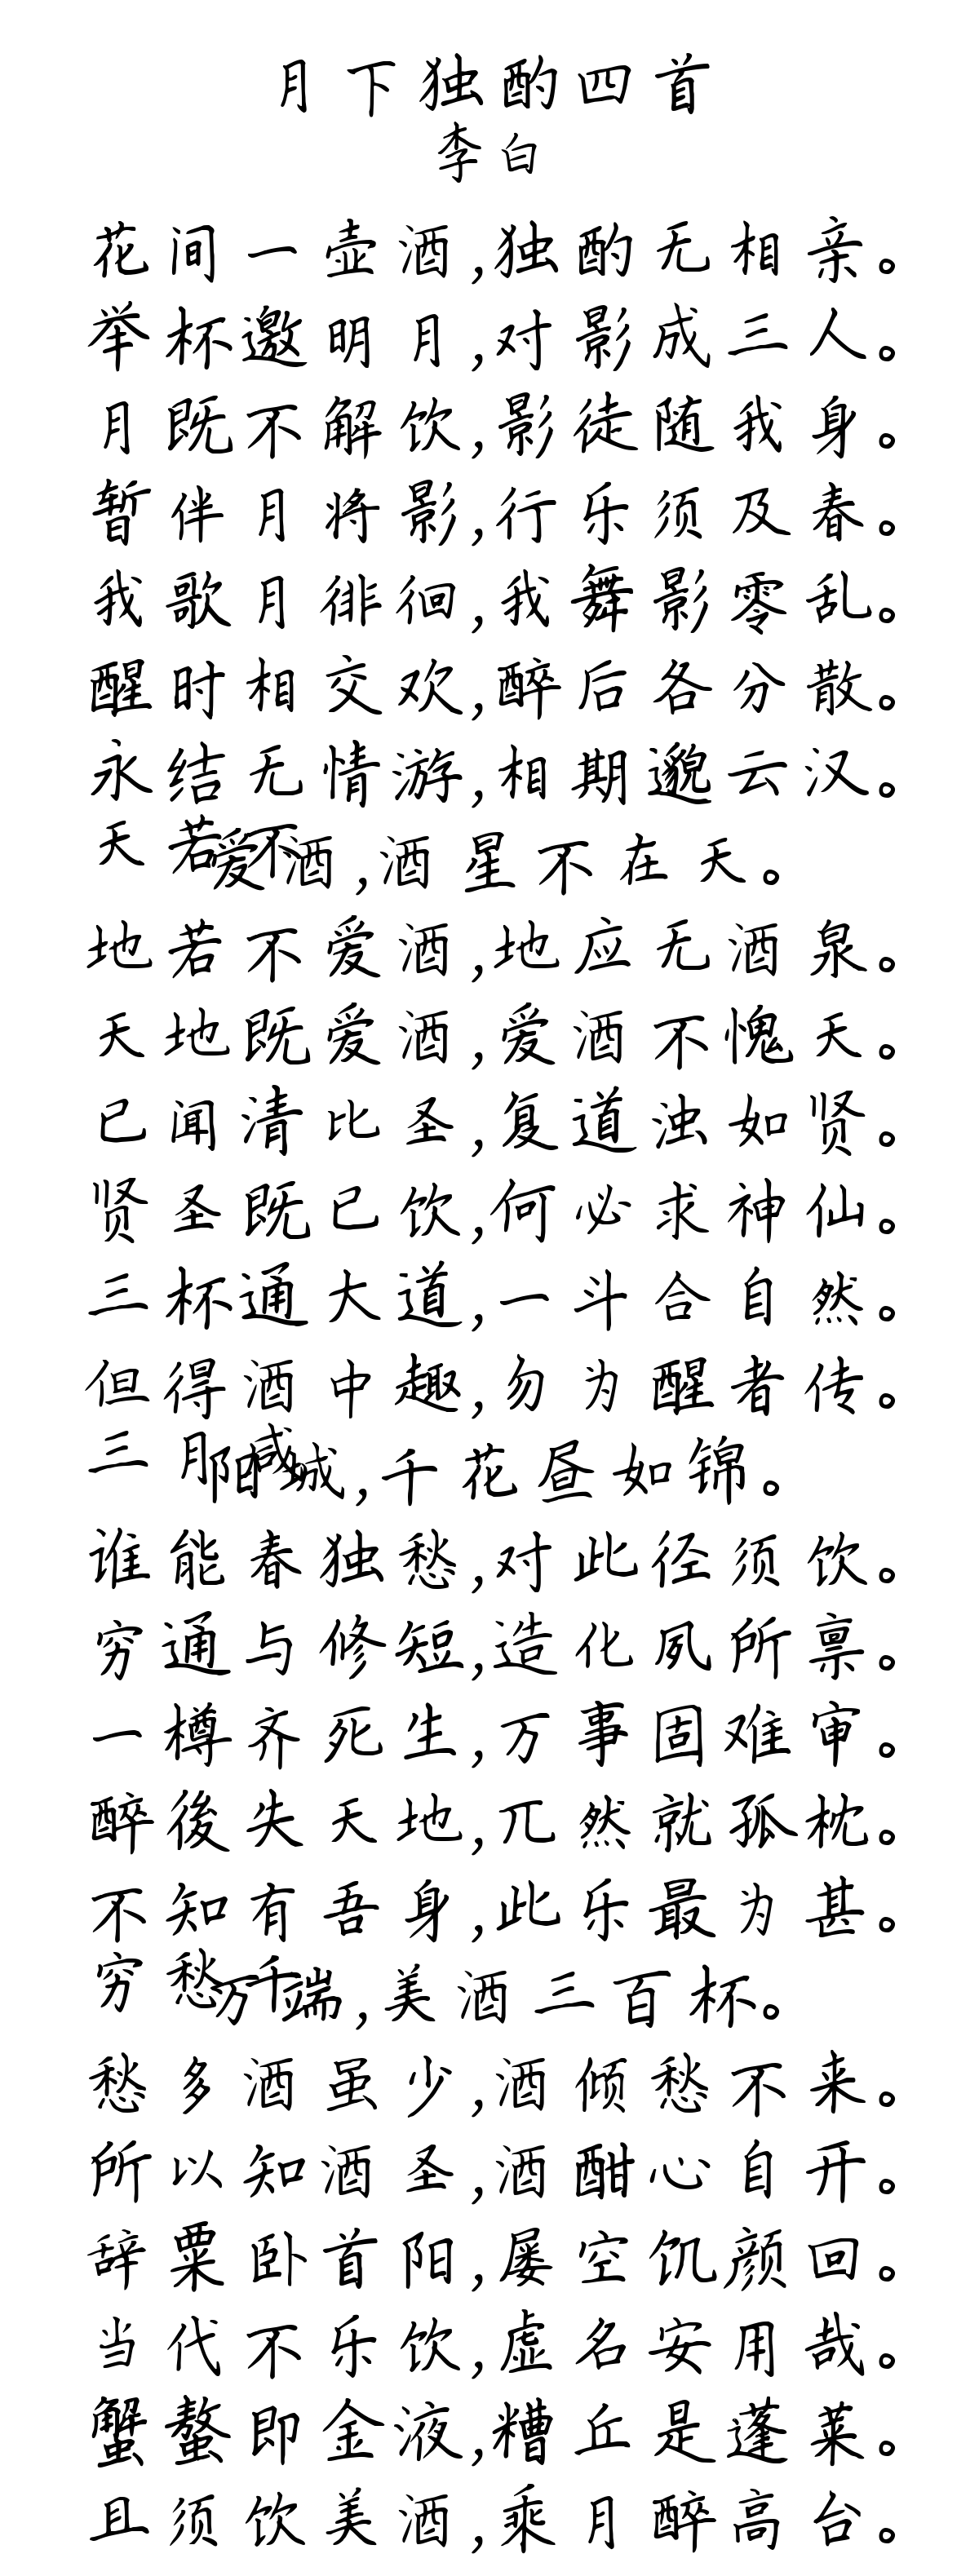 月下独酌四首
李白
花间一壶酒,独酌无相亲。
举杯邀明月,对影成三人。
月既不解饮,影徒随我身。
暂伴月将影,行乐须及春。
我歌月徘徊,我舞影零乱。
醒时相交欢,醉后各分散。
永结无情游,相期邈云汉。
天若不爱酒,酒星不在天。
地若不爱酒,地应无酒泉。
天地既爱酒,爱酒不愧天。
已闻清比圣,复道浊如贤。
贤圣既已饮,何必求神仙。
三杯通大道,一斗合自然。
但得酒中趣,勿为醒者传。
三月咸阳城,千花昼如锦。
谁能春独愁,对此径须饮。
穷通与修短,造化夙所禀。
一樽齐死生,万事固难审。
醉後失天地,兀然就孤枕。
不知有吾身,此乐最为甚。
穷愁千万端,美酒三百杯。
愁多酒虽少,酒倾愁不来。
所以知酒圣,酒酣心自开。
辞粟卧首阳,屡空饥颜回。
当代不乐饮,虚名安用哉。
蟹螯即金液,糟丘是蓬莱。
且须饮美酒,乘月醉高台。